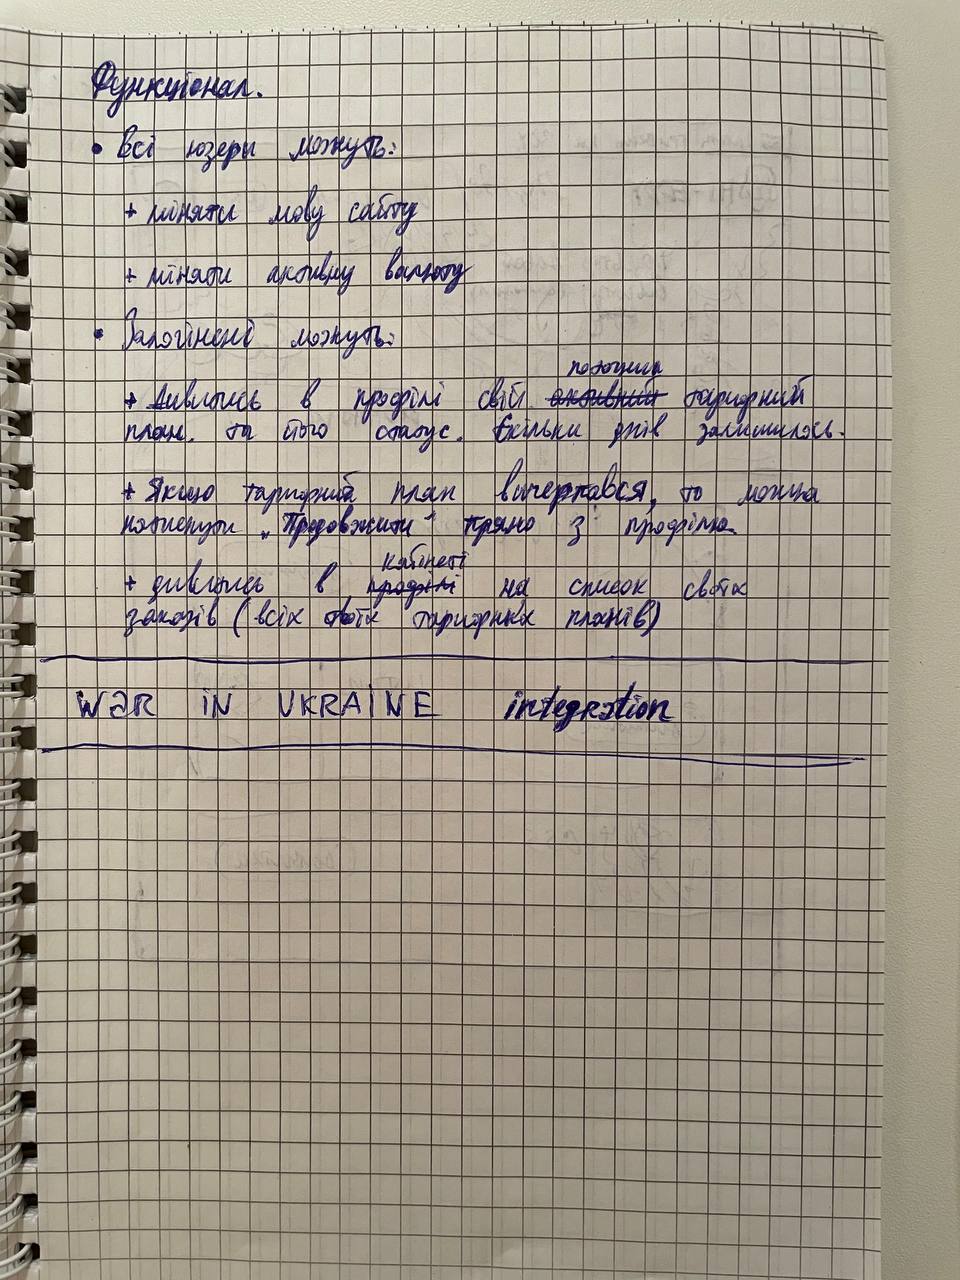 Функціонал.
• Всі юзери можуть:
+ міняти мову сайту
+ міняти активну валюту
• Залогінені можуть:
поточний
+ Дивитись в профілі свій активний тарифний
план. та його статус. Скільки днів залишилось.
+ Якщо тарифний план вичерпався, то можна
натиснути „Продовжити" прямо з профілю.
кабінеті
+ дивитись в профілі на список своїх
заказів (всіх своїх тарифних планів)
WAR IN UKRAINE integration